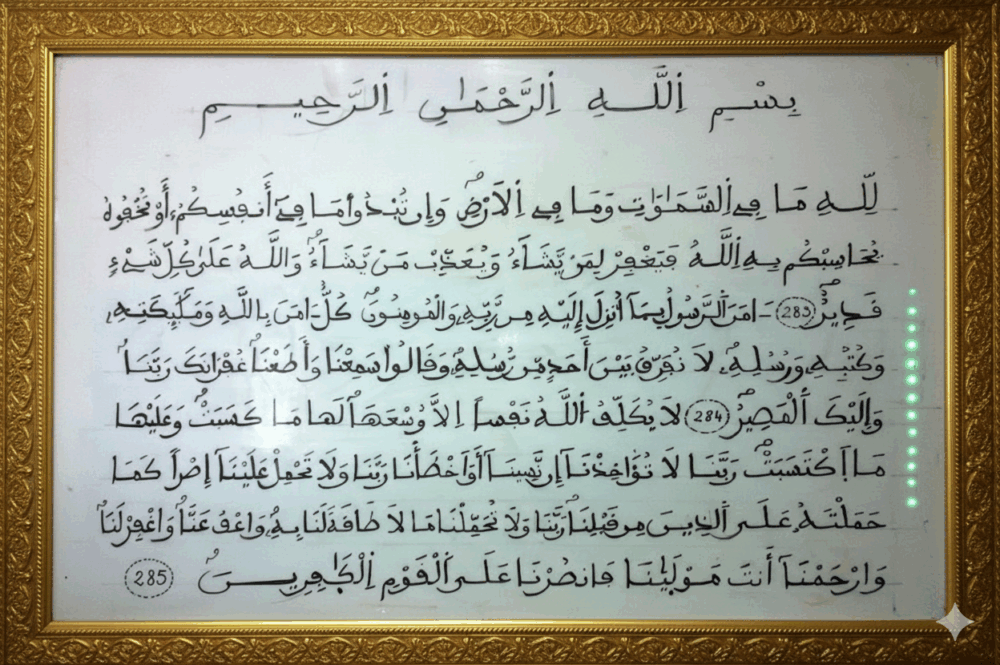 بِسْمِ اِ۬للَّهِ اِ۬لرَّحْمَٰنِ اِ۬لرَّحِيمِ
لِّلهِ مَا فِے اِ۬لسَّمَٰوَٰتِ وَمَا فِے اِ۬لَارْضِۖ وَإِن تُبْدُواْ مَا فِےٓ أَنفُسِكُمُۥٓ أَوْ تُخْفُوهُ
يُحَاسِبْكُم بِهِ اِ۬للَّهُ فَيَغْفِرْ لِمَنْ يَّشَآءُ وَيُعَذِّب مَّنْ يَّشَآءُۖ وَاللَّهُ عَلَىٰ كُلِّ شَےْءٍ
قَدِيرٌۖ (283) ـ‍َٔامَنَ اَ۬لرَّسُولُ بِمَآ أُنزِلَ إِلَيْهِ مِن رَّبِّهِۦ وَالْمُومِنُونَۖ كُلٌّ ـ‍َٔامَنَ بِاللَّهِ وَمَلَٰٓئِكَتِهِۦ
وَكُتُبِهِۦ وَرُسُلِهِۦۖ لَا نُفَرِّقُ بَيْنَ أَحَدٍ مِّن رُّسُلِهِۦۖ وَقَالُواْ سَمِعْنَا وَأَطَعْنَاۖ غُفْرَانَكَ رَبَّنَاۖ
وَإِلَيْكَ اَ۬لْمَصِيرُۖ (284) لَا يُكَلِّفُ اُ۬للَّهُ نَفْساً اِلَّا وُسْعَهَاۖ لَهَا مَا كَسَبَتْۖ وَعَلَيْهَا
مَا اَ۪كْتَسَبَتْۖ رَبَّنَا لَا تُؤَاخِذْنَآ إِن نَّسِينَآ أَوَ اَخْطَأْنَاۖ رَبَّنَا وَلَا تَحْمِلْ عَلَيْنَآ إِصْراً كَمَا
حَمَلْتَهُۥ عَلَى اَ۬لذِينَ مِن قَبْلِنَاۖ رَبَّنَا وَلَا تُحَمِّلْنَا مَا لَا طَاقَةَ لَنَا بِهِۦۖ وَاعْفُ عَنَّاۖ وَاغْفِرْ لَنَاۖ
وَارْحَمْنَآ أَنتَ مَوْلَىٰنَا فَانصُرْنَا عَلَى اَ۬لْقَوْمِ اِ۬لْكَٰفِرِينَۖ (285)